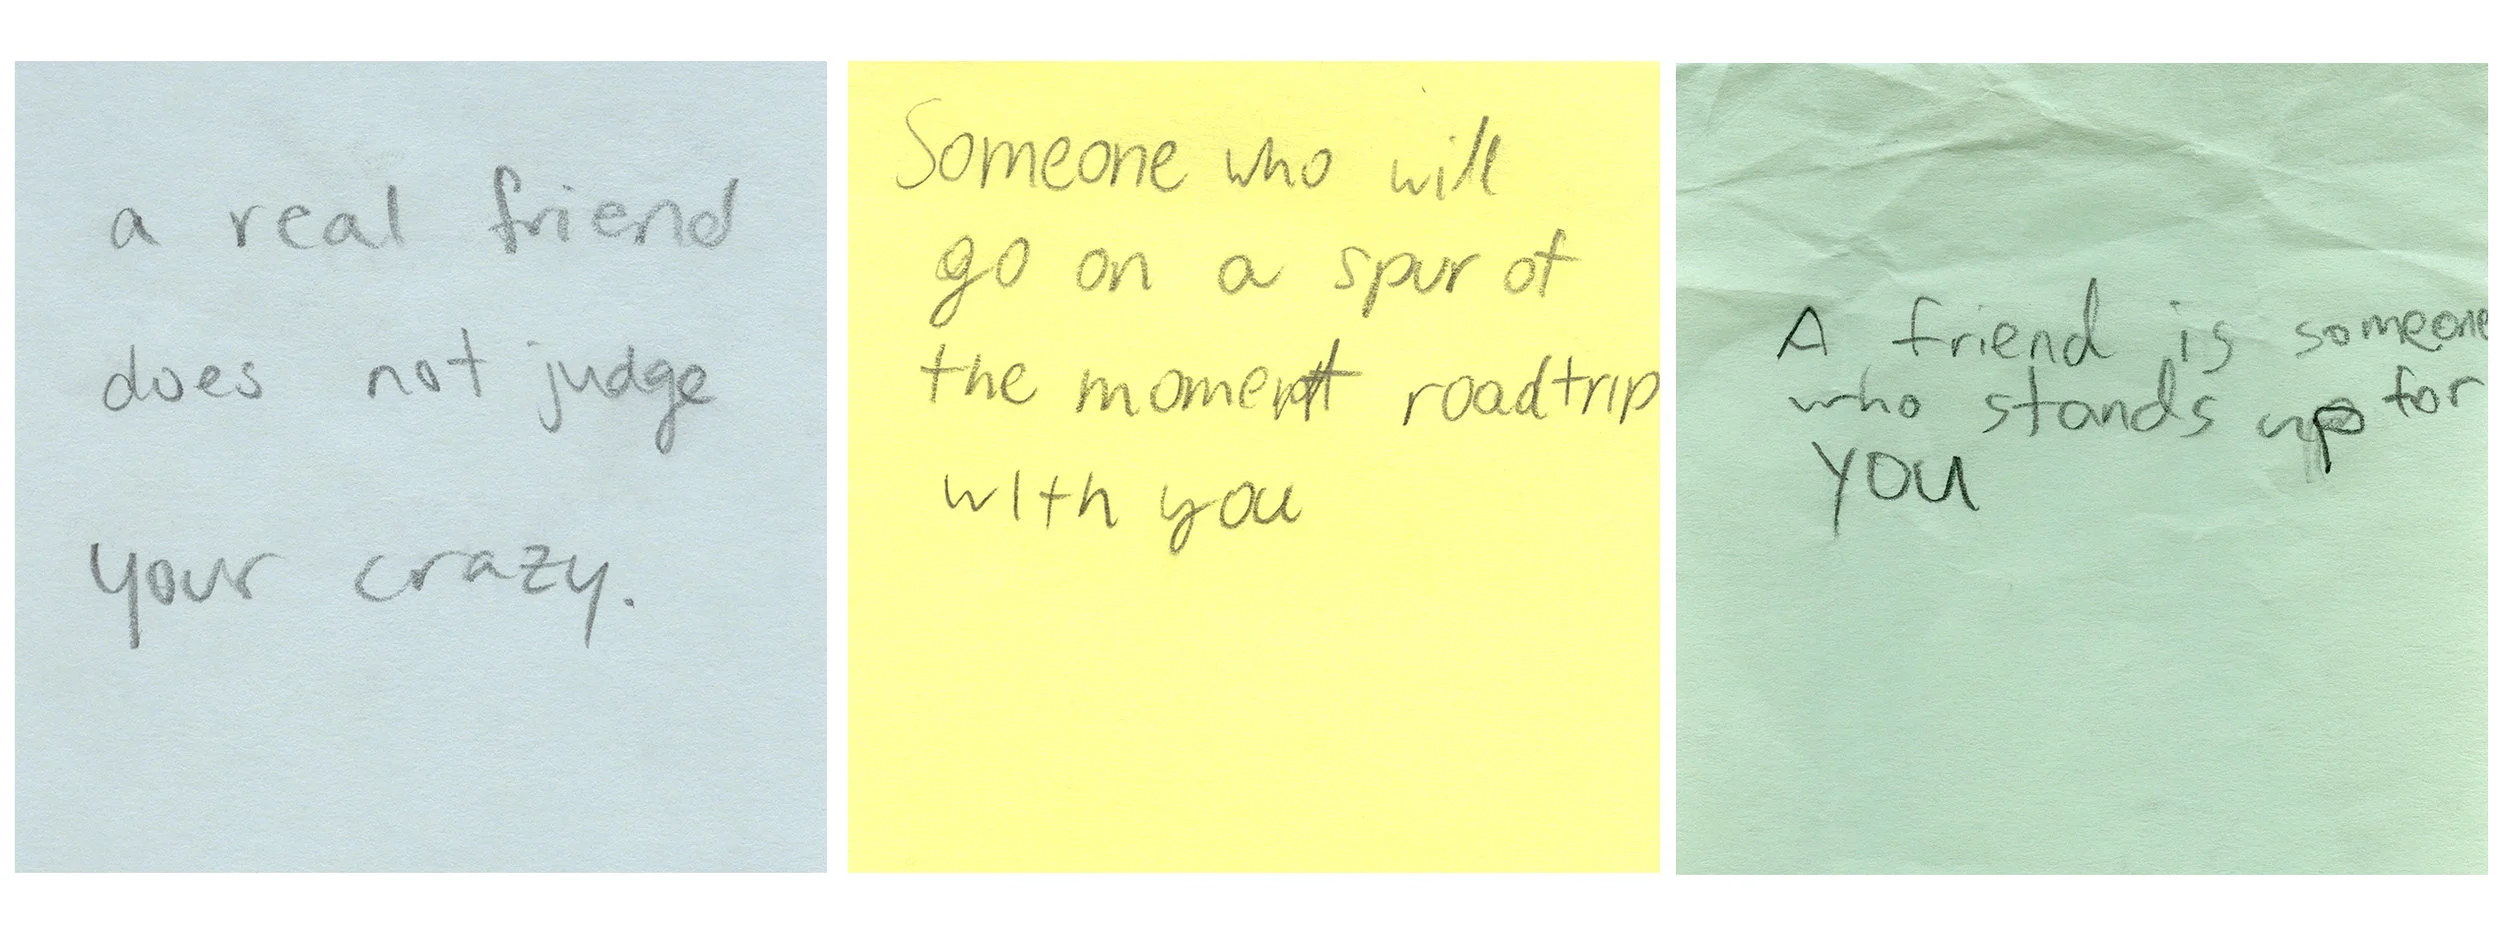 a real friend
does not judge
your crazy.
Someone who will
go on a spur of
the moment roadtrip
with you
A friend is someone
who stands up for
you